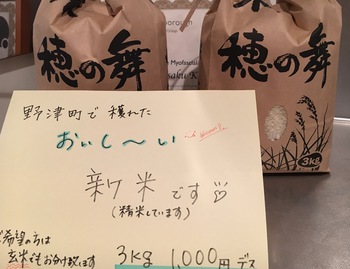 穂の舞
穂の舞
3kg
野津町で穫れた
おいし〜い
新米です♡
(精米しています)
希望の方は
玄米でもお分け致します
3kg 1,000円デス